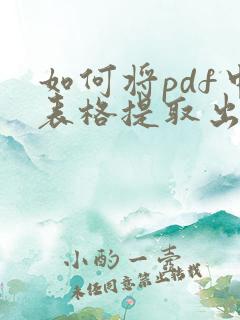 如何将pdf中
表格提取出
小酌一壶
未经同意禁止转载